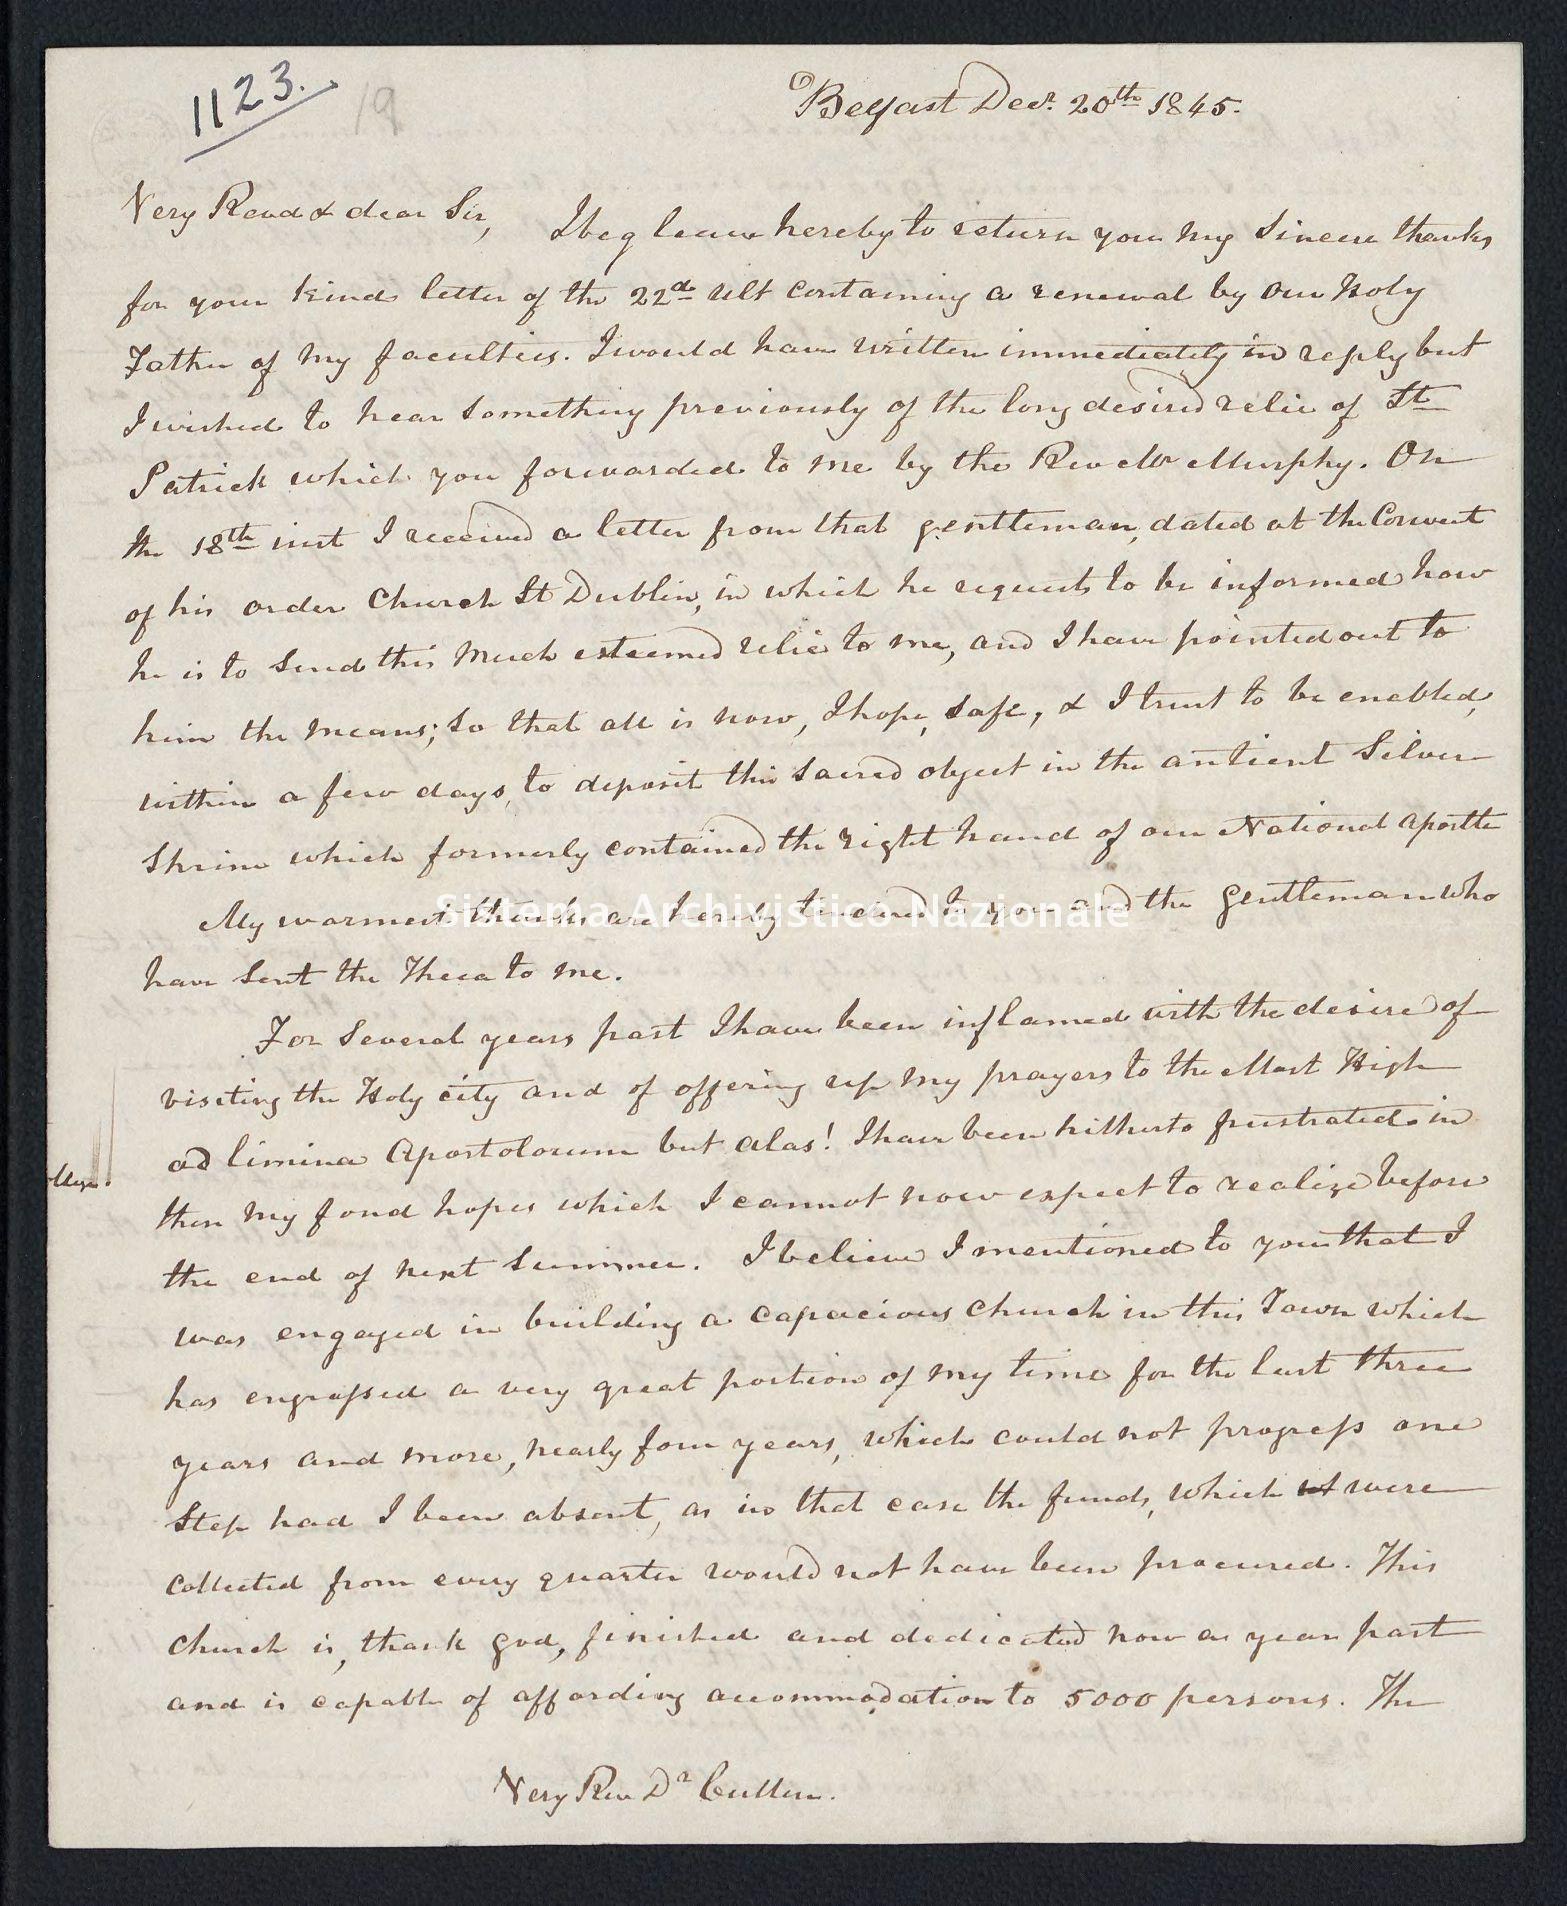 1123. 19
Belfast Decr. 20th 1845.
Very Revd & dear Sir,
I beg leave hereby to return you my Sincere thanks
for your kind letter of the 22d ult containing a renewal by our Holy
Father of my faculties. I would have written immediately in reply but
I wished to hear something previously of the long desired relic of St
Patrick which you forwarded to me by the Revd Mr Murphy. On
the 18th inst I received a letter from that gentleman, dated at the Convent
of his order Church St Dublin, in which he requests to be informed how
he is to send this much esteemed relic to me, and I have pointed out to
him the means; so that all is now, I hope, safe, & I trust to be enabled,
within a few days, to deposit this sacred object in the antient Silver
Shrine which formerly contained the right hand of our National Apostle
My warmest thanks are hereby tendered to you and the Gentleman who
Sistema Archivistico Nazionale
have sent the Theca to me.
For Several years past I have been inflamed with the desire of
visiting the Holy city and of offering up my prayers to the Most High
ad limina Apostolorum but alas! I have been hitherto frustrated in
then my fond hopes which I cannot now expect to realize before
the end of next Summer. I believe I mentioned to you that I
was engaged in building a capacious church in this Town which
has engrossed a very great portion of my time for the last three
years and more, nearly four years, which could not progress one
Step had I been absent, as in that case the funds, which were
collected from every quarter would not have been procured. This
church is, thank god, finished and dedicated now a year past
and is capable of affording accommodation to 5000 persons. The
Very Rev Dr Cullen.